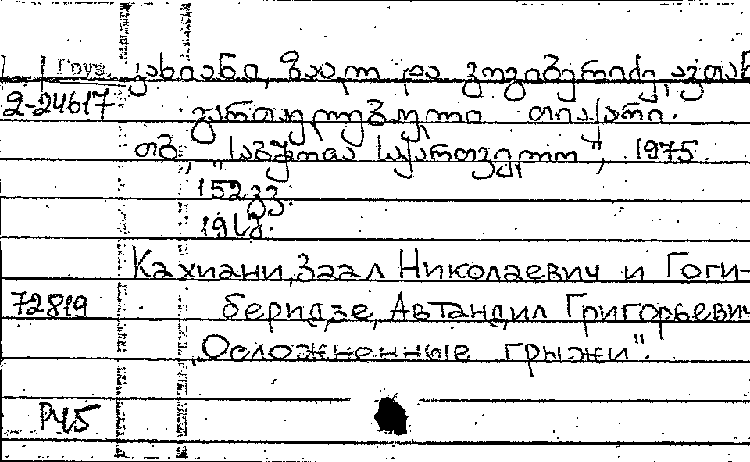 Груз. კახიანი, ზაალ და გოგიბერიძე, ავთან
2-24617 გართულებული თიაქარი.
თბ., "საბჭოთა საქართველო", 1975.
152 გვ.
Кахиани, Заал Николаевич и Гоги-
72819 беридзе, Автандил Григорьевич
"Осложненные грыжи".